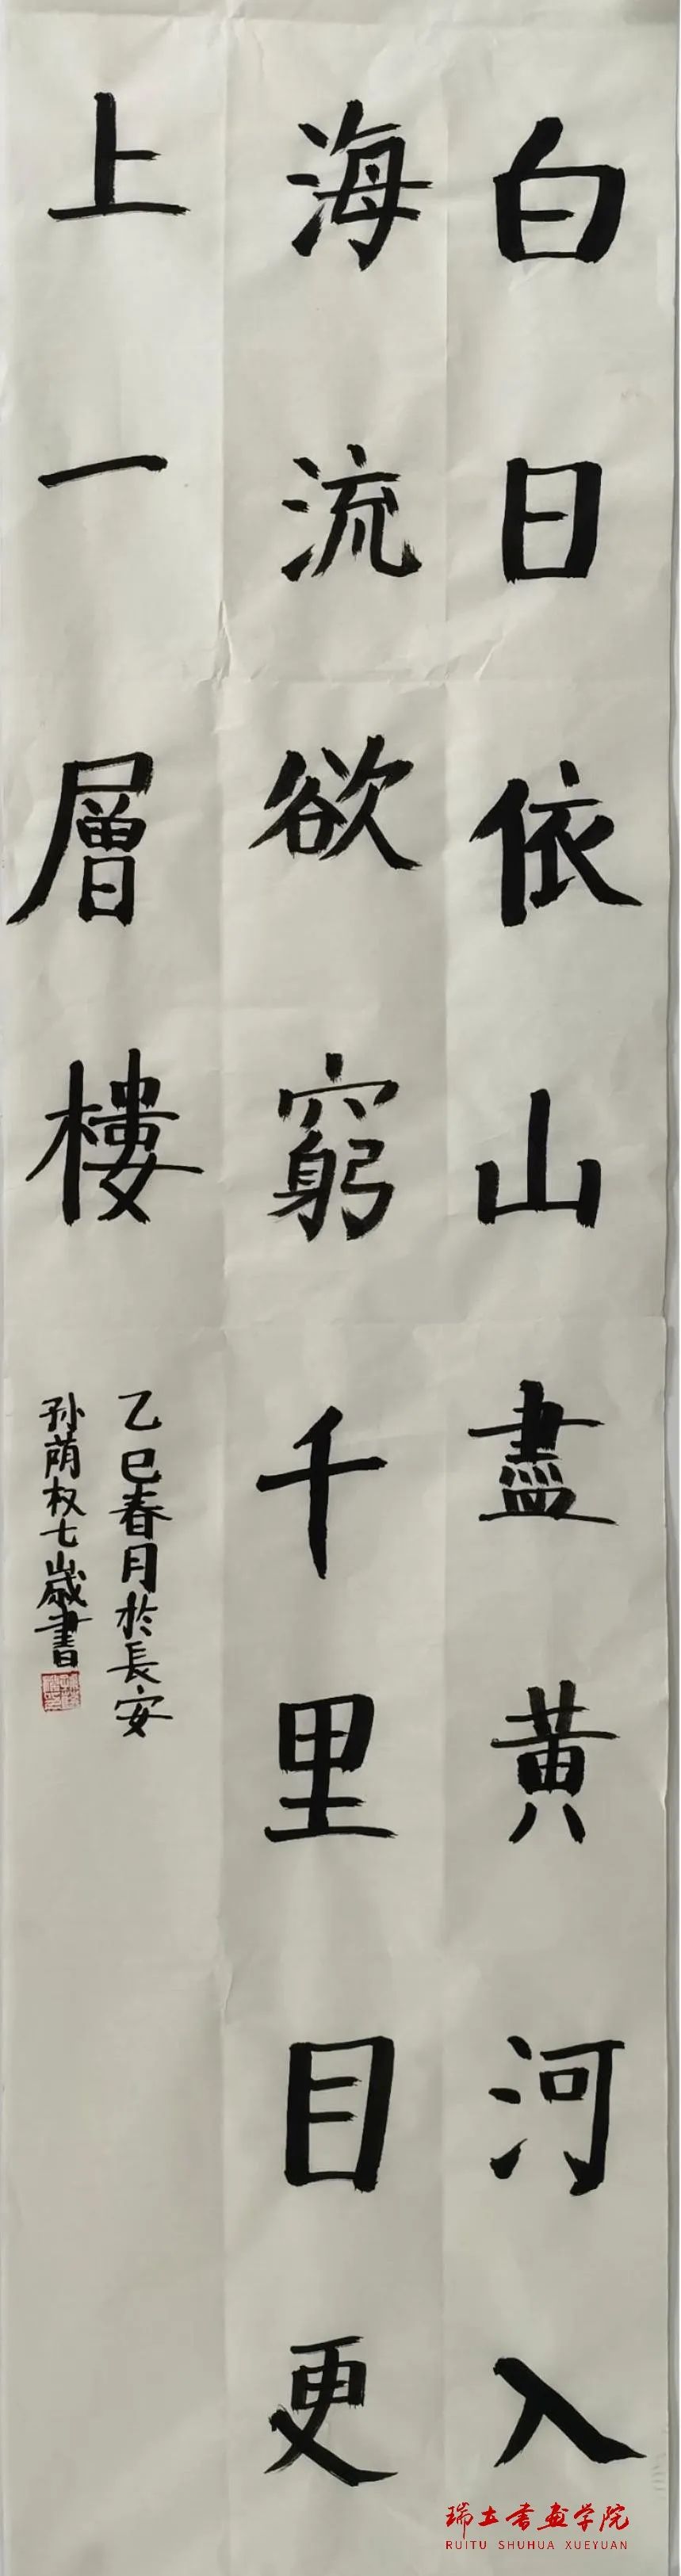 白日依山盡黃河入
海流欲窮千里目更
上一層樓
乙巳春月於長安
孙荫权七歲書
瑞土书画学院
RUITU SHUHUA XUEYUAN